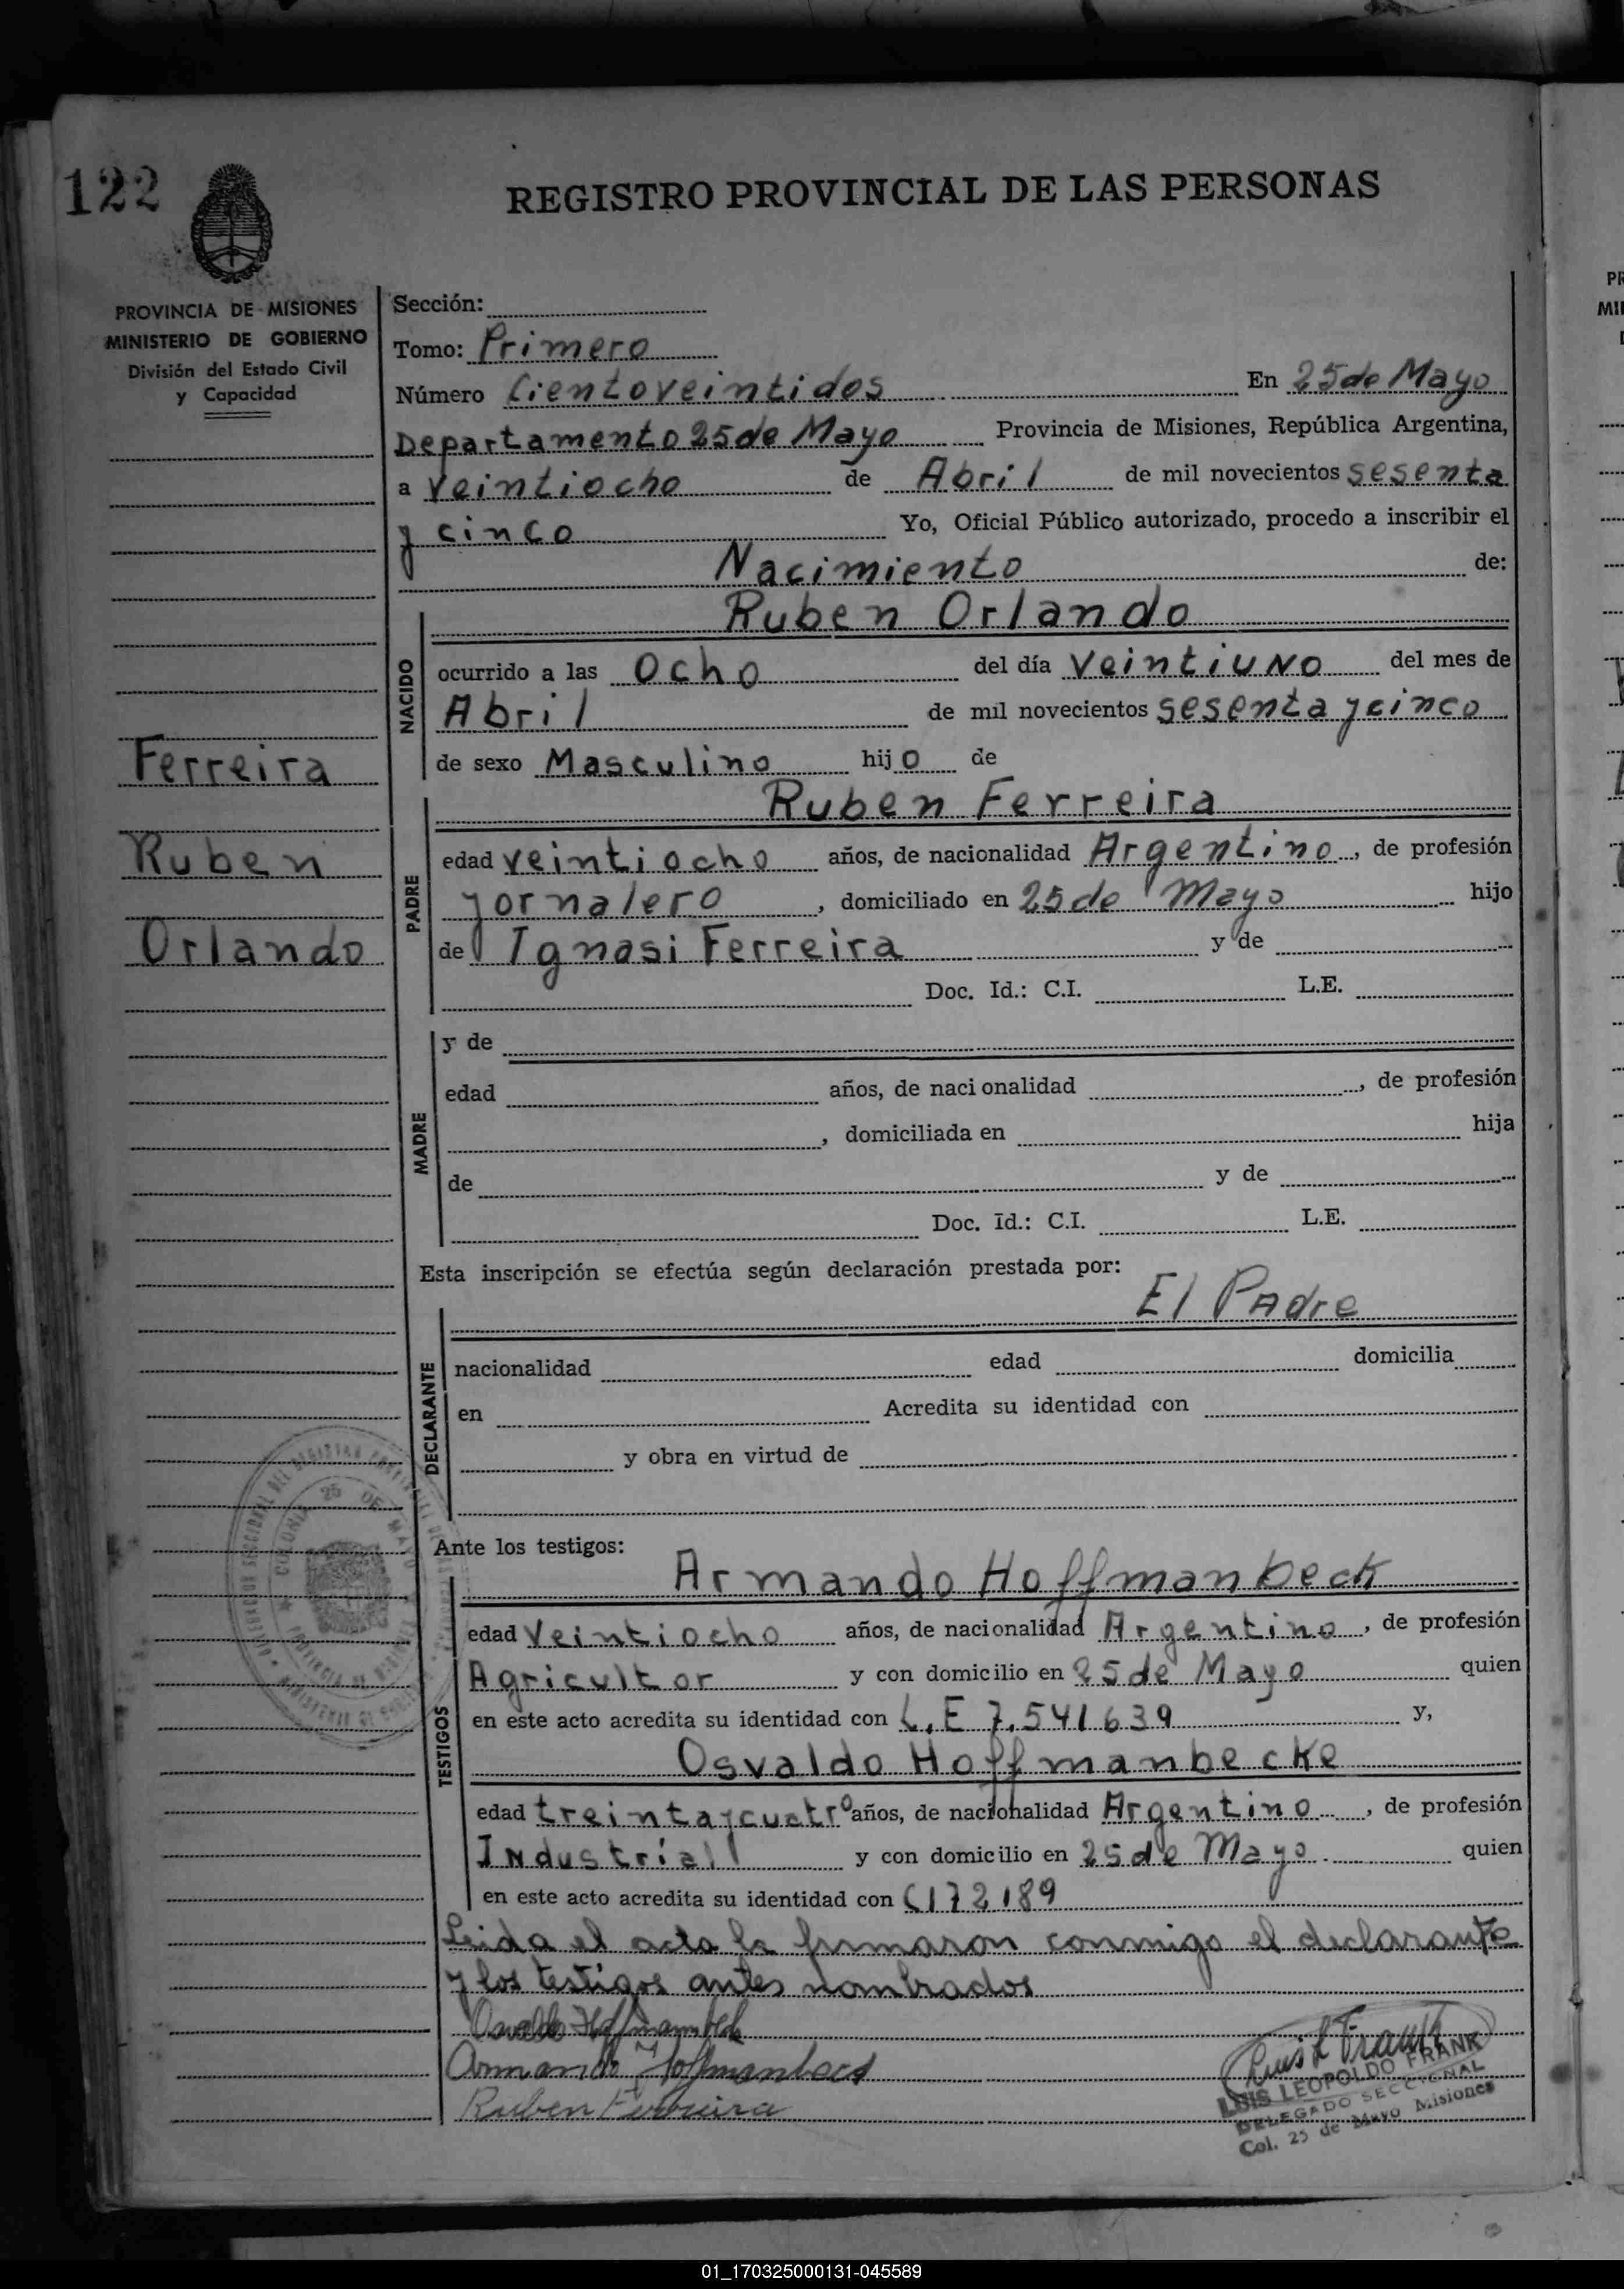 122
REGISTRO PROVINCIAL DE LAS PERSONAS
PROVINCIA DE MISIONES
MINISTERIO DE GOBIERNO
División del Estado Civil
y Capacidad
Sección:
Tomo: Primero
Número Cientoveintidos En 25 de Mayo
Departamento 25 de Mayo Provincia de Misiones, República Argentina,
a veintiocho de Abril de mil novecientos sesenta
y cinco Yo, Oficial Público autorizado, procedo a inscribir el
Nacimiento de:
NACIDO
Ruben Orlando
ocurrido a las Ocho del día veintiuno del mes de
Abril de mil novecientos sesenta y cinco
de sexo Masculino hijo de
Ferreira
Ruben
Orlando
PADRE
Ruben Ferreira
edad veintiocho años, de nacionalidad Argentino, de profesión
jornalero, domiciliado en 25 de Mayo hijo
de Ignasi Ferreira y de
Doc. Id.: C.I. L.E.
MADRE
y de
edad años, de nacionalidad , de profesión
, domiciliada en hija
de y de
Doc. Id.: C.I. L.E.
Esta inscripción se efectúa según declaración prestada por:
DECLARANTE
El Padre
nacionalidad edad domicilia
en Acredita su identidad con
y obra en virtud de
COLONIA 25 DE MAYO
Ante los testigos:
TESTIGOS
Armando Hoffmanbeck
edad veintiocho años, de nacionalidad Argentino, de profesión
Agricultor y con domicilio en 25 de Mayo quien
en este acto acredita su identidad con L.E 7.541639 y,
Osvaldo Hoffmanbecke
edad treinta y cuatro años, de nacionalidad Argentino, de profesión
Industrial y con domicilio en 25 de Mayo quien
en este acto acredita su identidad con C172189
Leida el acta la firmaron conmigo el declarante
y los testigos antes nombrados
Osvaldo Hoffmanbeck
Armando Hoffmanbeck
Ruben Ferreira
Luis L Frank
LUIS LEOPOLDO FRANK
DELEGADO SECCIONAL
Col. 25 de Mayo Misiones
01_170325000131-045589